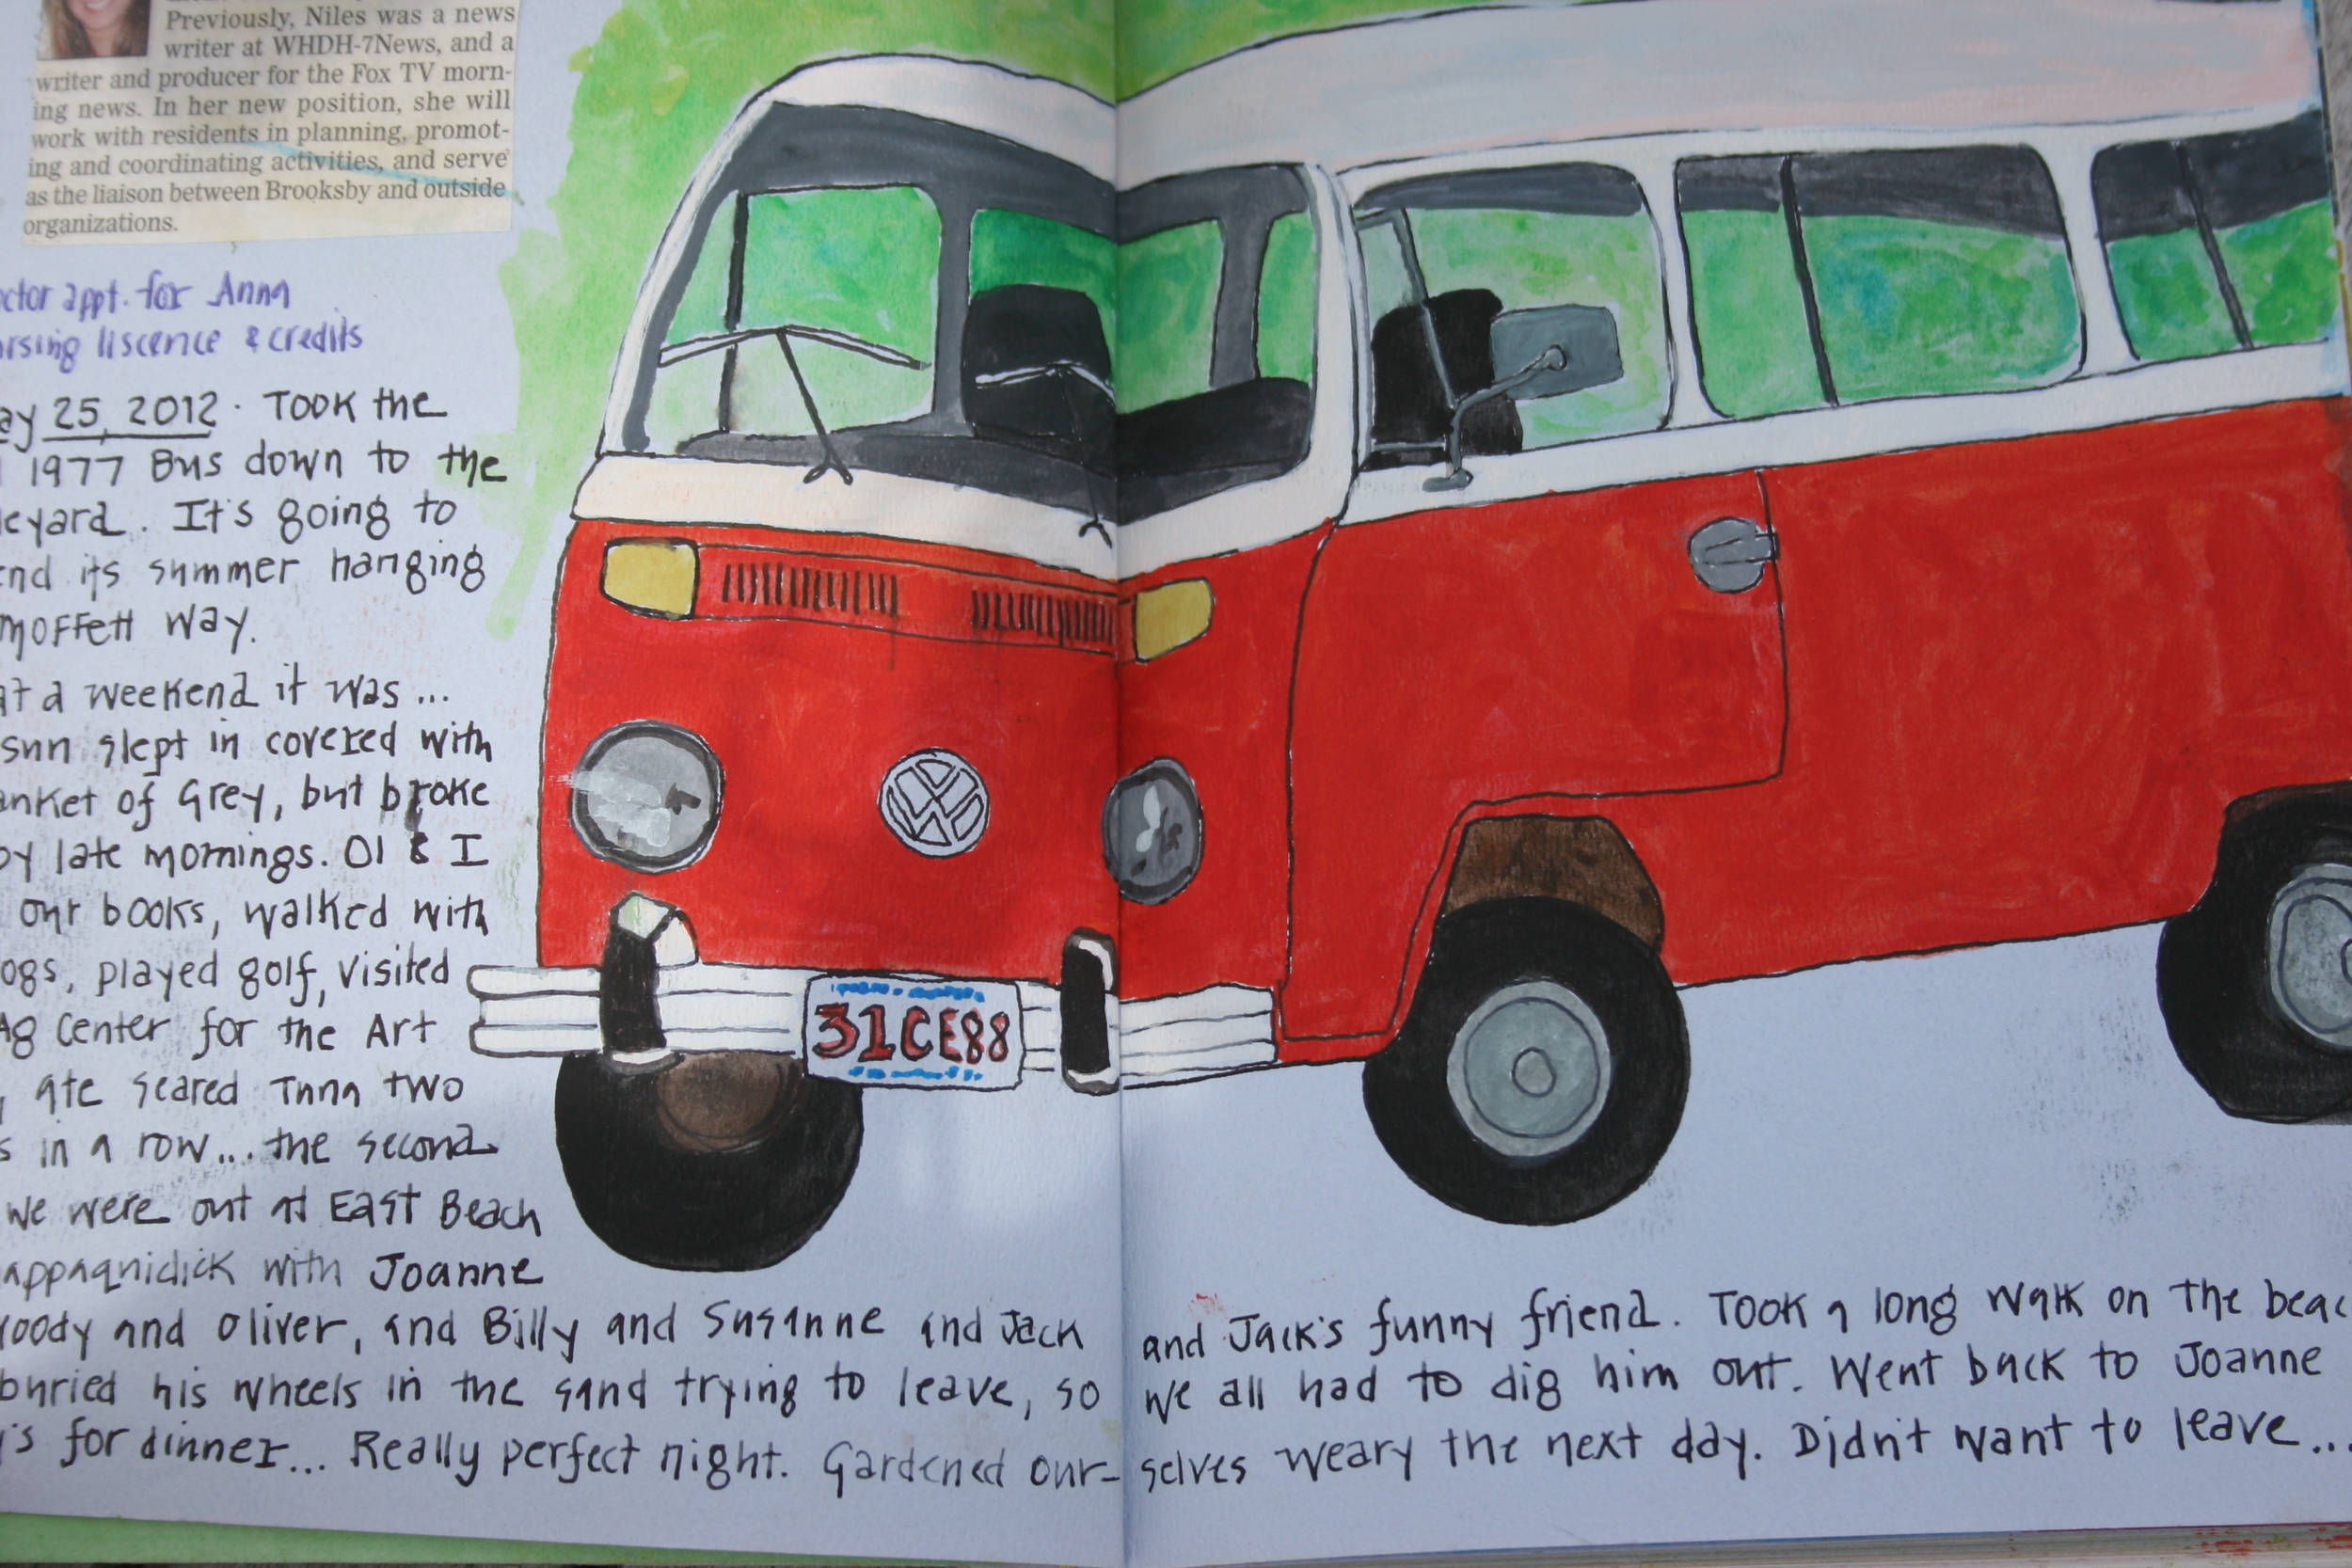 Previously, Niles was a news
writer at WHDH-7News, and a
writer and producer for the Fox TV morn-
ing news. In her new position, she will
work with residents in planning, promot-
ing and coordinating activities, and serve
as the liaison between Brooksby and outside
organizations.
ctor appt. for Anna
rsing liscence & credits
ay 25, 2012. Took the
1977 Bus down to the
eyard. It's going to
end its summer hanging
Moffett Way.
at a weekend it was...
sun slept in covered with
anket of Grey, but broke
by late mornings. Ol & I
our books, walked with
ogs, played golf, visited
Ag Center for the Art
ate seared Tuna two
s in a row... the second
we were out at East Beach
appaquidick with Joanne
oody and Oliver, and Billy and Susanne and Jack and Jack's funny friend. Took a long walk on the beac
buried his wheels in the sand trying to leave, so we all had to dig him out. Went back to Joanne
's for dinner... Really perfect night. Gardened our-selves weary the next day. Didn't want to leave...
VW
31CE88